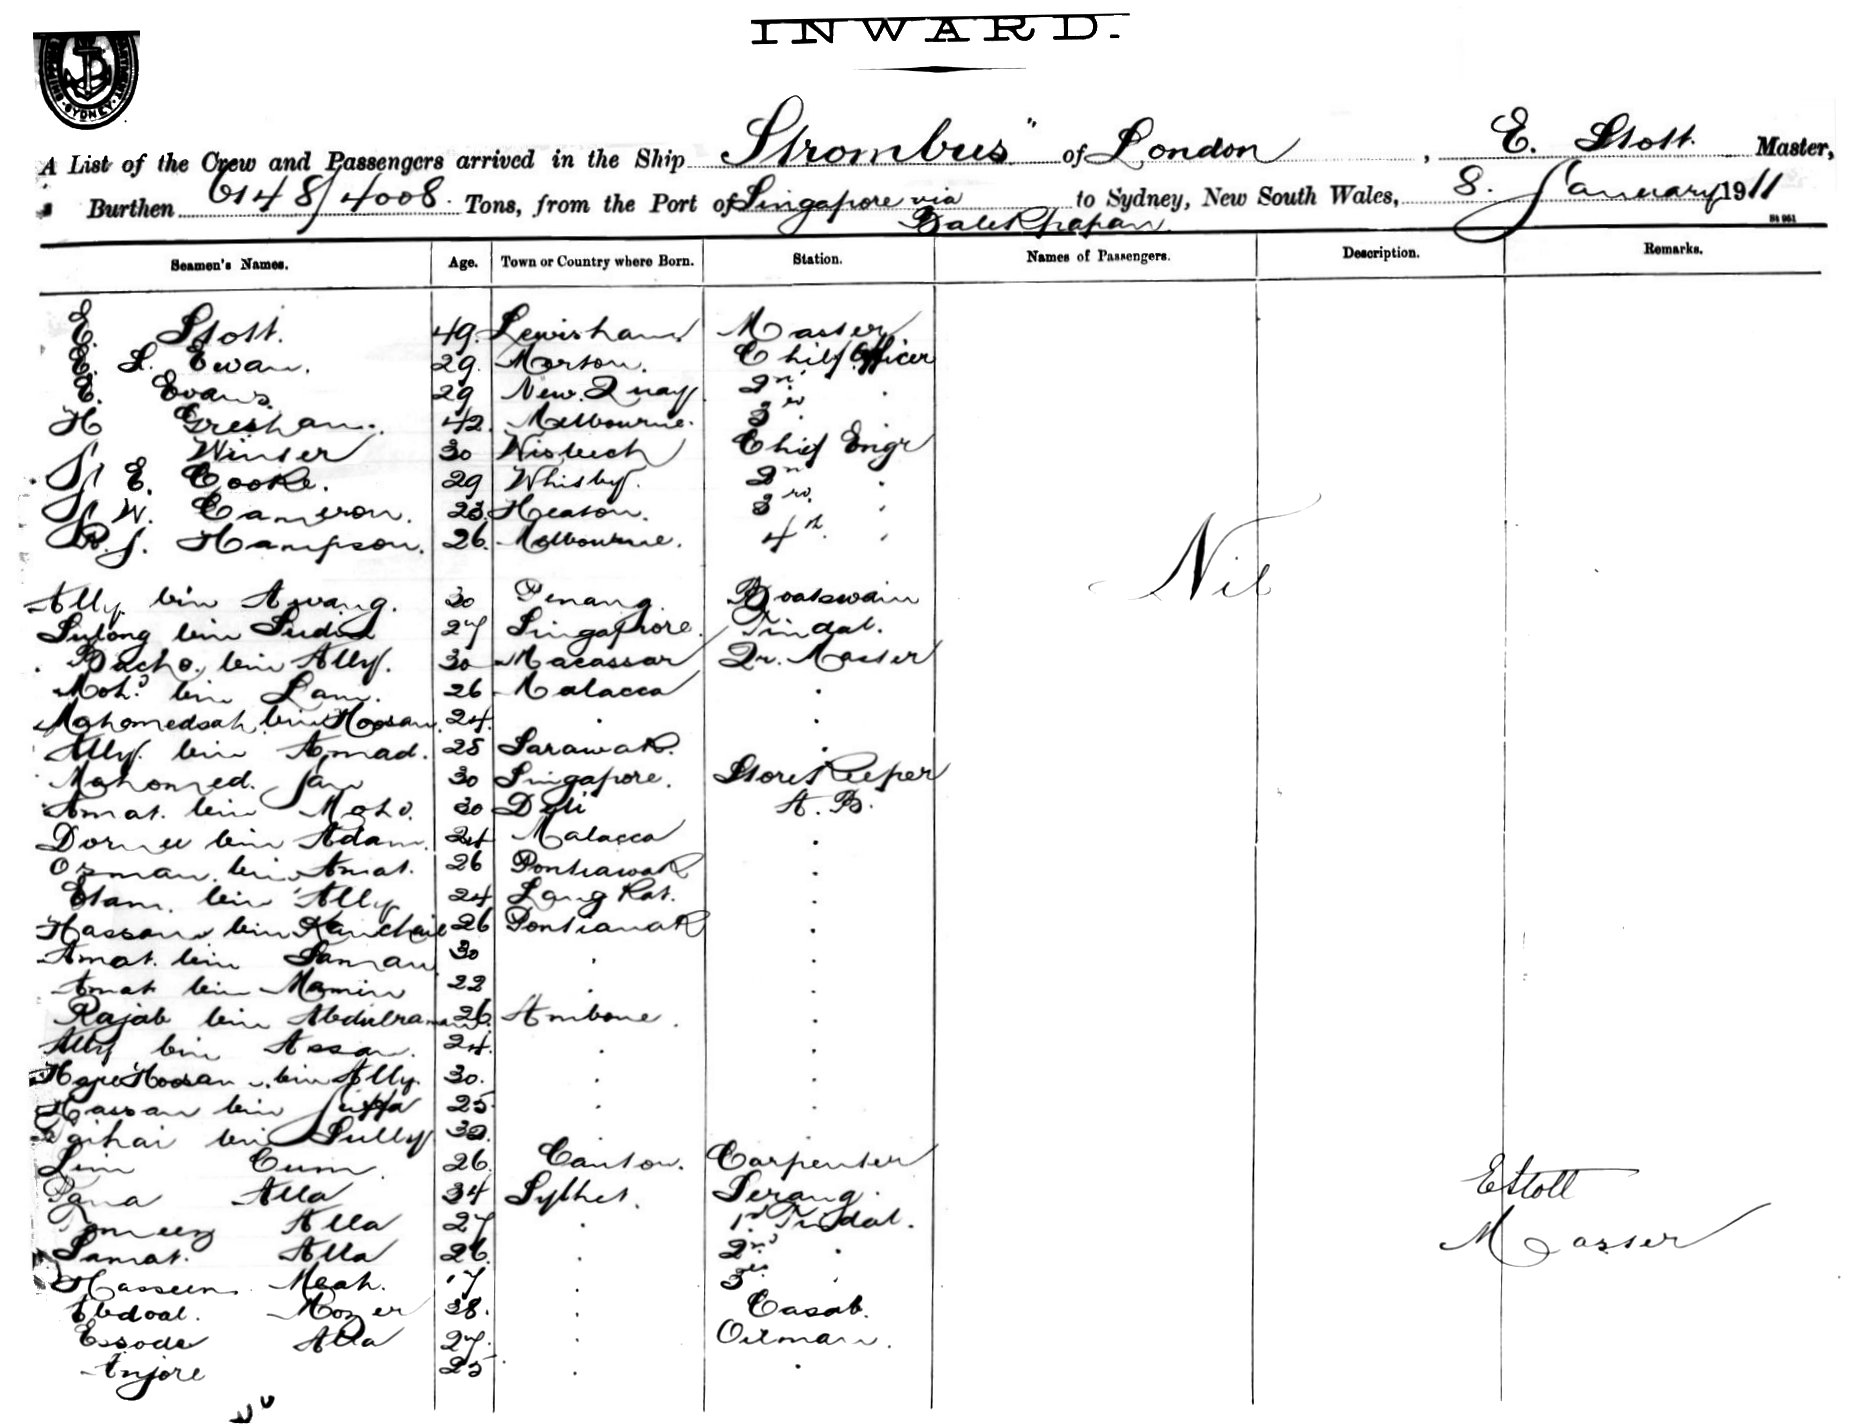 INWARD.
SYDNEY
A List of the Crew and Passengers arrived in the Ship "Strombus" of London, E. Stott Master,
Burthen 6148/4008 Tons, from the Port of Singapore via Balikpapan to Sydney, New South Wales, 8. January 1911
Seamen's Names. Age. Town or Country where Born. Station. Names of Passengers. Description. Remarks.
E. Stott. 49. Lewisham Master
E. L. Ewan. 29. Morton. Chief Officer
E. Evans. 29 New Quay 2nd "
H Gresham. 42. Melbourne. 3rd "
Winter 30 Wisbech Chief Engr
E. Cooke. 29 Whitby. 2nd "
W. Cameron. 23. Heaton. 3rd "
R. J. Hampson. 26. Melbourne. 4th "
Nil
Ally bin Awang. 30 Penang. Boatswain
Sulong bin 27 Singapore. Tindal.
Bacho bin Ally. 30 Macassar Qr. Master
Mohd. bin Lam. 26 Malacca "
Mahomedsah bin Hoosan. 24. " "
Ally bin Amad. 25 Sarawak. "
Mahomed. Jan 30 Singapore. Store Keeper
Amat. bin Mohd. 30 Deli A. B.
bin Adam. 24 Malacca "
Osman bin Amat. 26 Pontiawak "
Etam. bin Ally 24 Lang Kat. "
Hassan bin 26 Pontianak "
Amat. bin Saman 30 " "
Amat bin Mamin 22 " "
Rajab bin Abdulraman. 26 Ambone. "
Ally bin Assan. 24. " "
Hoosan bin Ally. 30. " "
Hassan bin 25. " "
bin Sully 30. " "
Lim Cum. 26. Canton. Carpenter
Alla 34 Sylhet. Serang.
Alla 27 " 1st Tindal.
Samat. Alla 26. " 2nd "
Hasseen Meah. 17 " 3rd "
Abdoal. Mozer 38. " Casab.
Essode Alla 27. " Oilman.
Anjore 25 " "
E Stott
Master